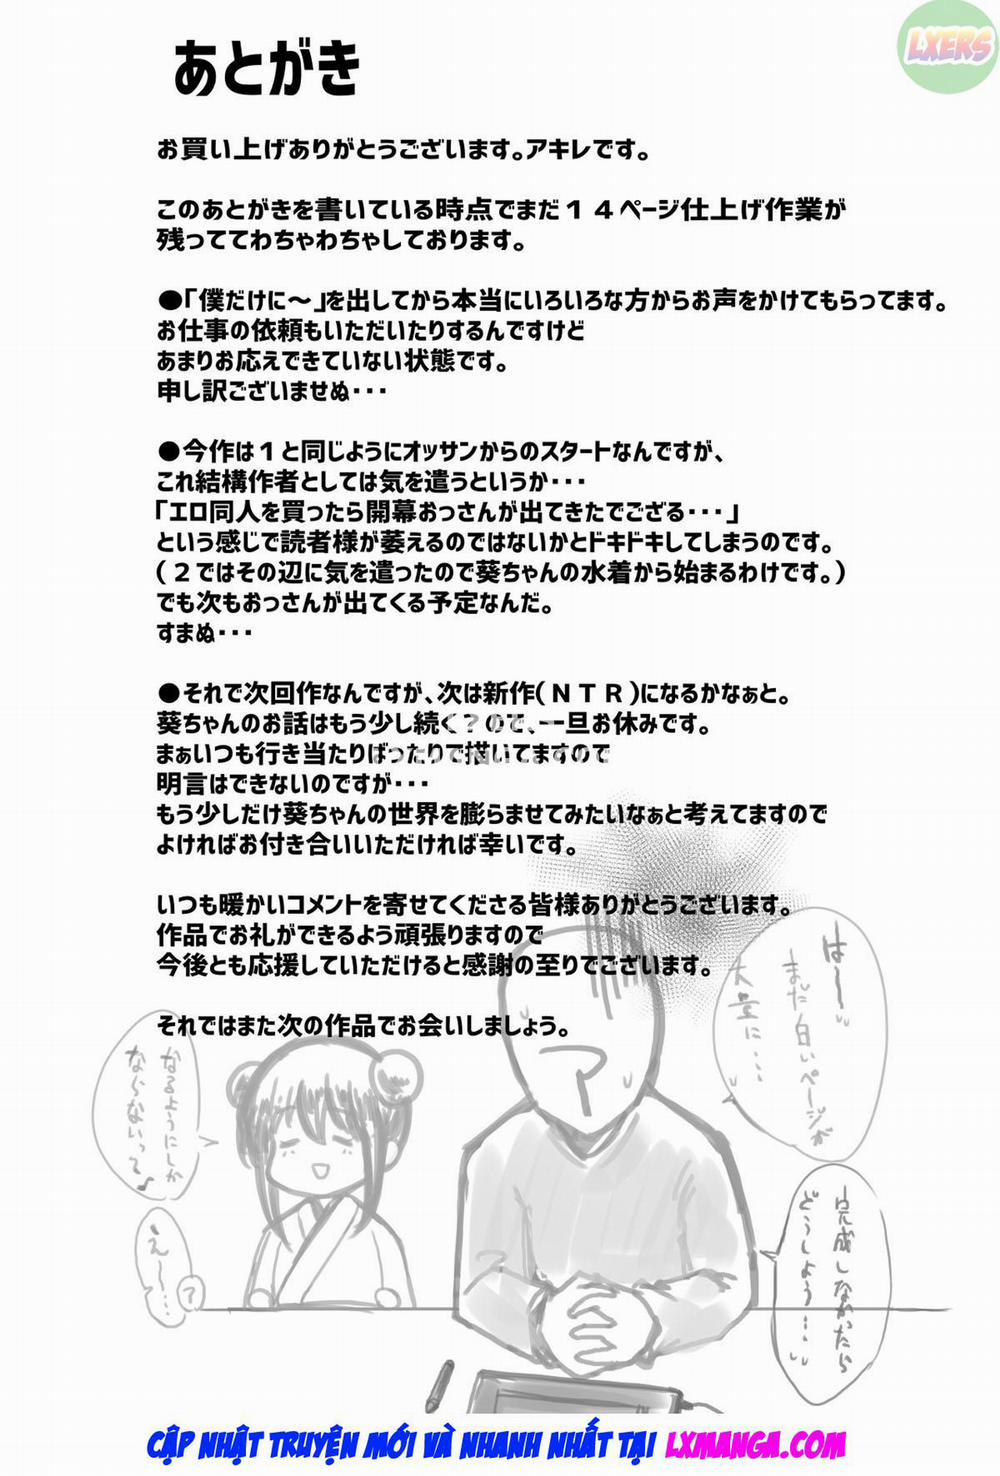 LXERS
あとがき
お買い上げありがとうございます。アキレです。
このあとがきを書いている時点でまだ１４ページ仕上げ作業が
残っててわちゃわちゃしております。
●「僕だけに～」を出してから本当にいろいろな方からお声をかけてもらってます。
お仕事の依頼もいただいたりするんですけど
あまりお応えできていない状態です。
申し訳ございませぬ・・・
●今作は１と同じようにオッサンからのスタートなんですが、
これ結構作者としては気を遣うというか・・・
「エロ同人を買ったら開幕おっさんが出てきたでござる・・・」
という感じで読者様が萎えるのではないかとドキドキしてしまうのです。
（２ではその辺に気を遣ったので葵ちゃんの水着から始まるわけです。）
でも次もおっさんが出てくる予定なんだ。
すまぬ・・・
●それで次回作なんですが、次は新作（ＮＴＲ）になるかなぁと。
葵ちゃんのお話はもう少し続く？ので、一旦お休みです。
まぁいつも行き当たりばったりで描いてますので
明言はできないのですが・・・
もう少しだけ葵ちゃんの世界を膨らませてみたいなぁと考えてますので
よければお付き合いいただければ幸いです。
いつも暖かいコメントを寄せてくださる皆様ありがとうございます。
作品でお礼ができるよう頑張りますので
今後とも応援していただけると感謝の至りでございます。
それではまた次の作品でお会いしましょう。
は〜〜
まだ白いページが
大量に・・・
完成しなかったら
どうしよう・・・
なるようにしか
ならないって♪
え〜〜・・・
？
CẬP NHẬT TRUYỆN MỚI VÀ NHANH NHẤT TẠI LXMANGA.COM